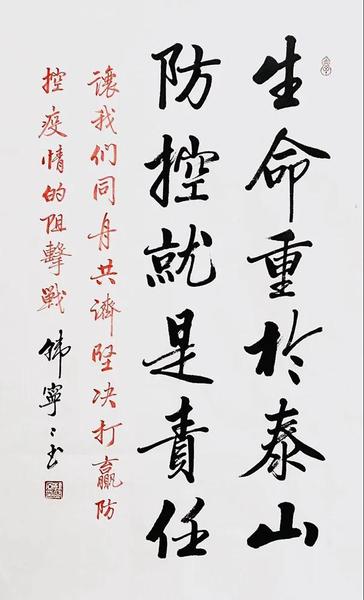 生命重於泰山
防控就是責任
讓我们同舟共濟堅决打贏防
控疫情的阻擊戰
寧〻书